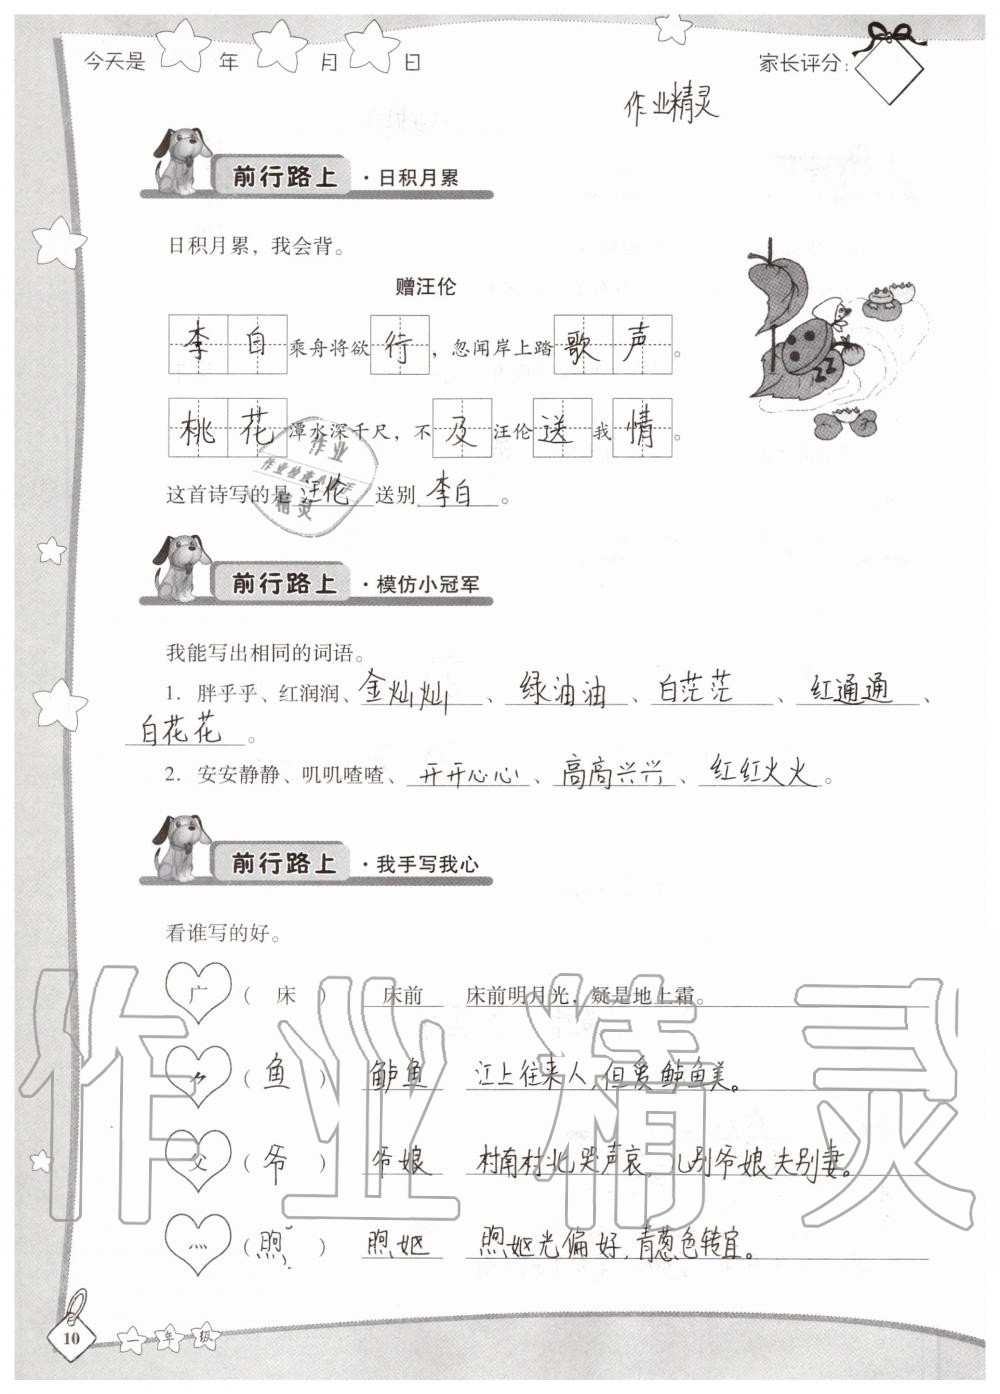 今天是 年 月 日 家长评分：
作业精灵
前行路上 ·日积月累
日积月累，我会背。
赠汪伦
李白乘舟将欲行，忽闻岸上踏歌声。
桃花潭水深千尺，不及汪伦送我情。
这首诗写的是 汪伦 送别 李白 。
前行路上 ·模仿小冠军
我能写出相同的词语。
1. 胖乎乎、红润润、金灿灿、绿油油、白茫茫、红通通、
白花花。
2. 安安静静、叽叽喳喳、开开心心、高高兴兴、红红火火。
前行路上 ·我手写我心
看谁写的好。
广 （ 床 ） 床前 床前明月光，疑是地上霜。
⺈ （ 鱼 ） 鲈鱼 江上往来人，但爱鲈鱼美。
父 （ 爷 ） 爷娘 村南村北哭声哀，儿别爷娘夫别妻。
灬 （ 煦 ） 煦妪 煦妪光偏好，青葱色转宜。
10 一年级
作业
作业检查小帮手
精灵
作业精灵